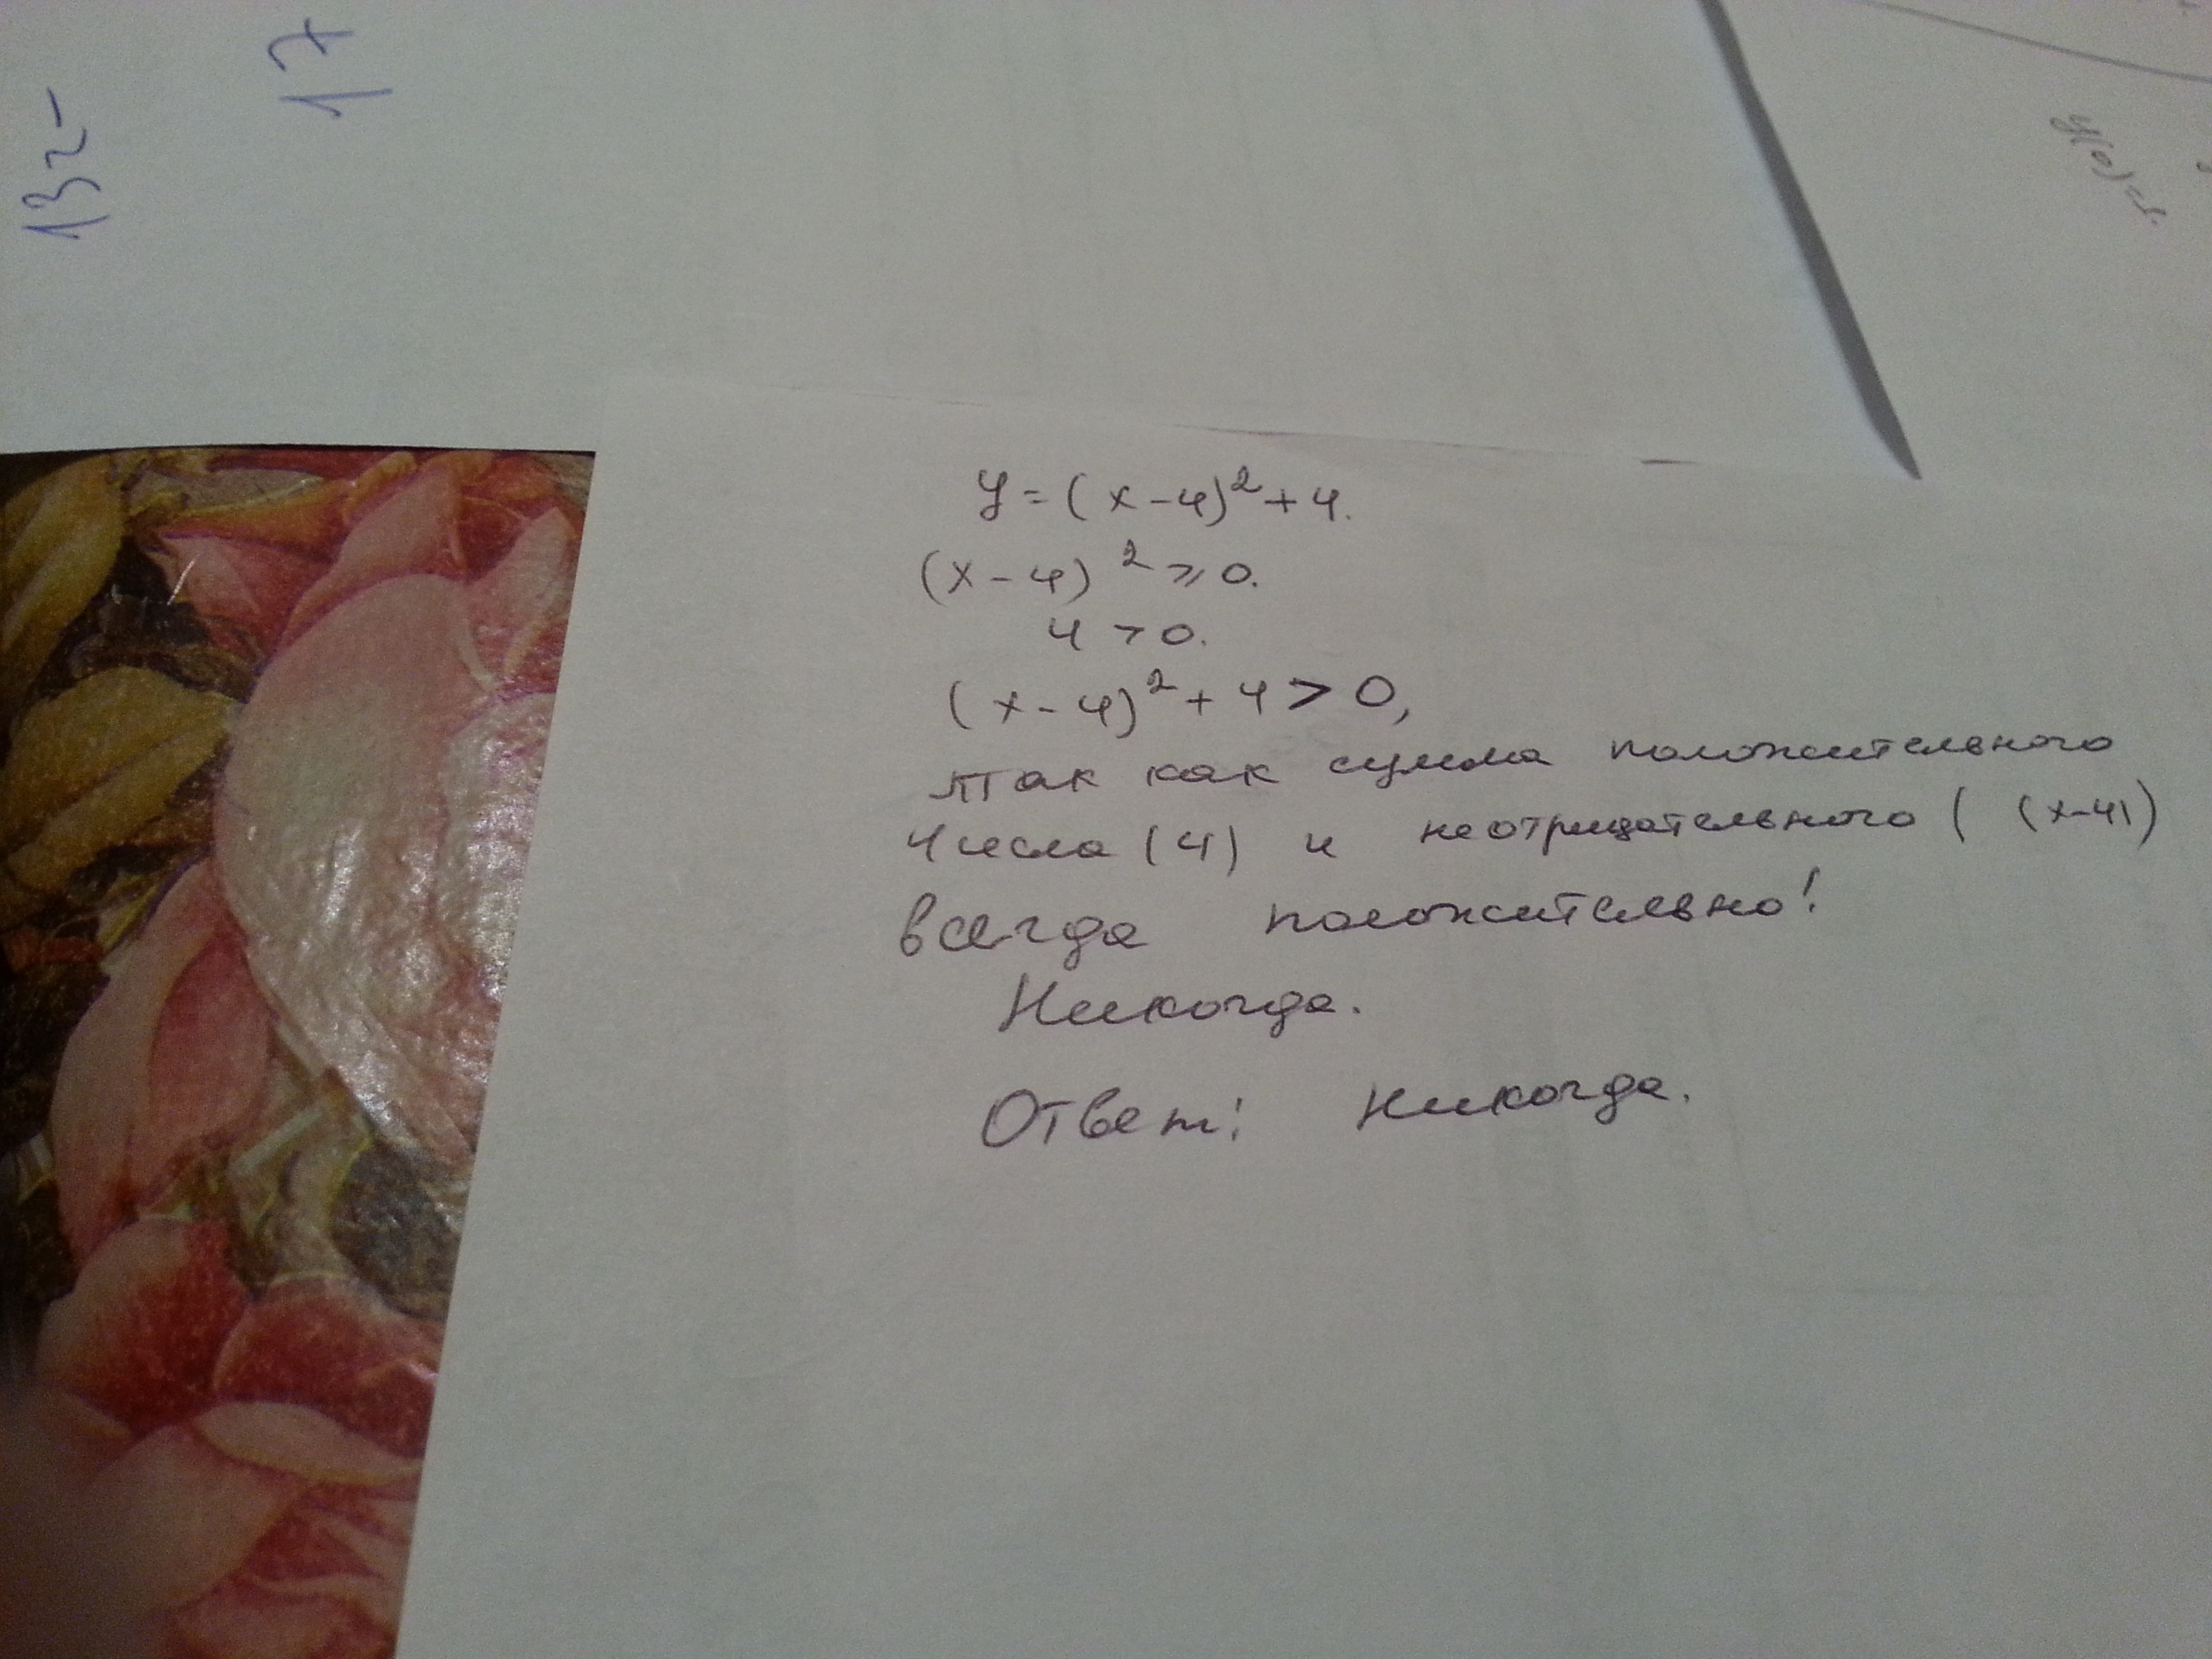 132-
17
y(0)=
y=(x-4)²+4.
(x-4)²⩾0.
4>0.
(x-4)²+4>0,
так как сумма положительного
числа (4) и неотрицательного ( (x-4))
всегда положительно!
Никогда.
Ответ: никогда.